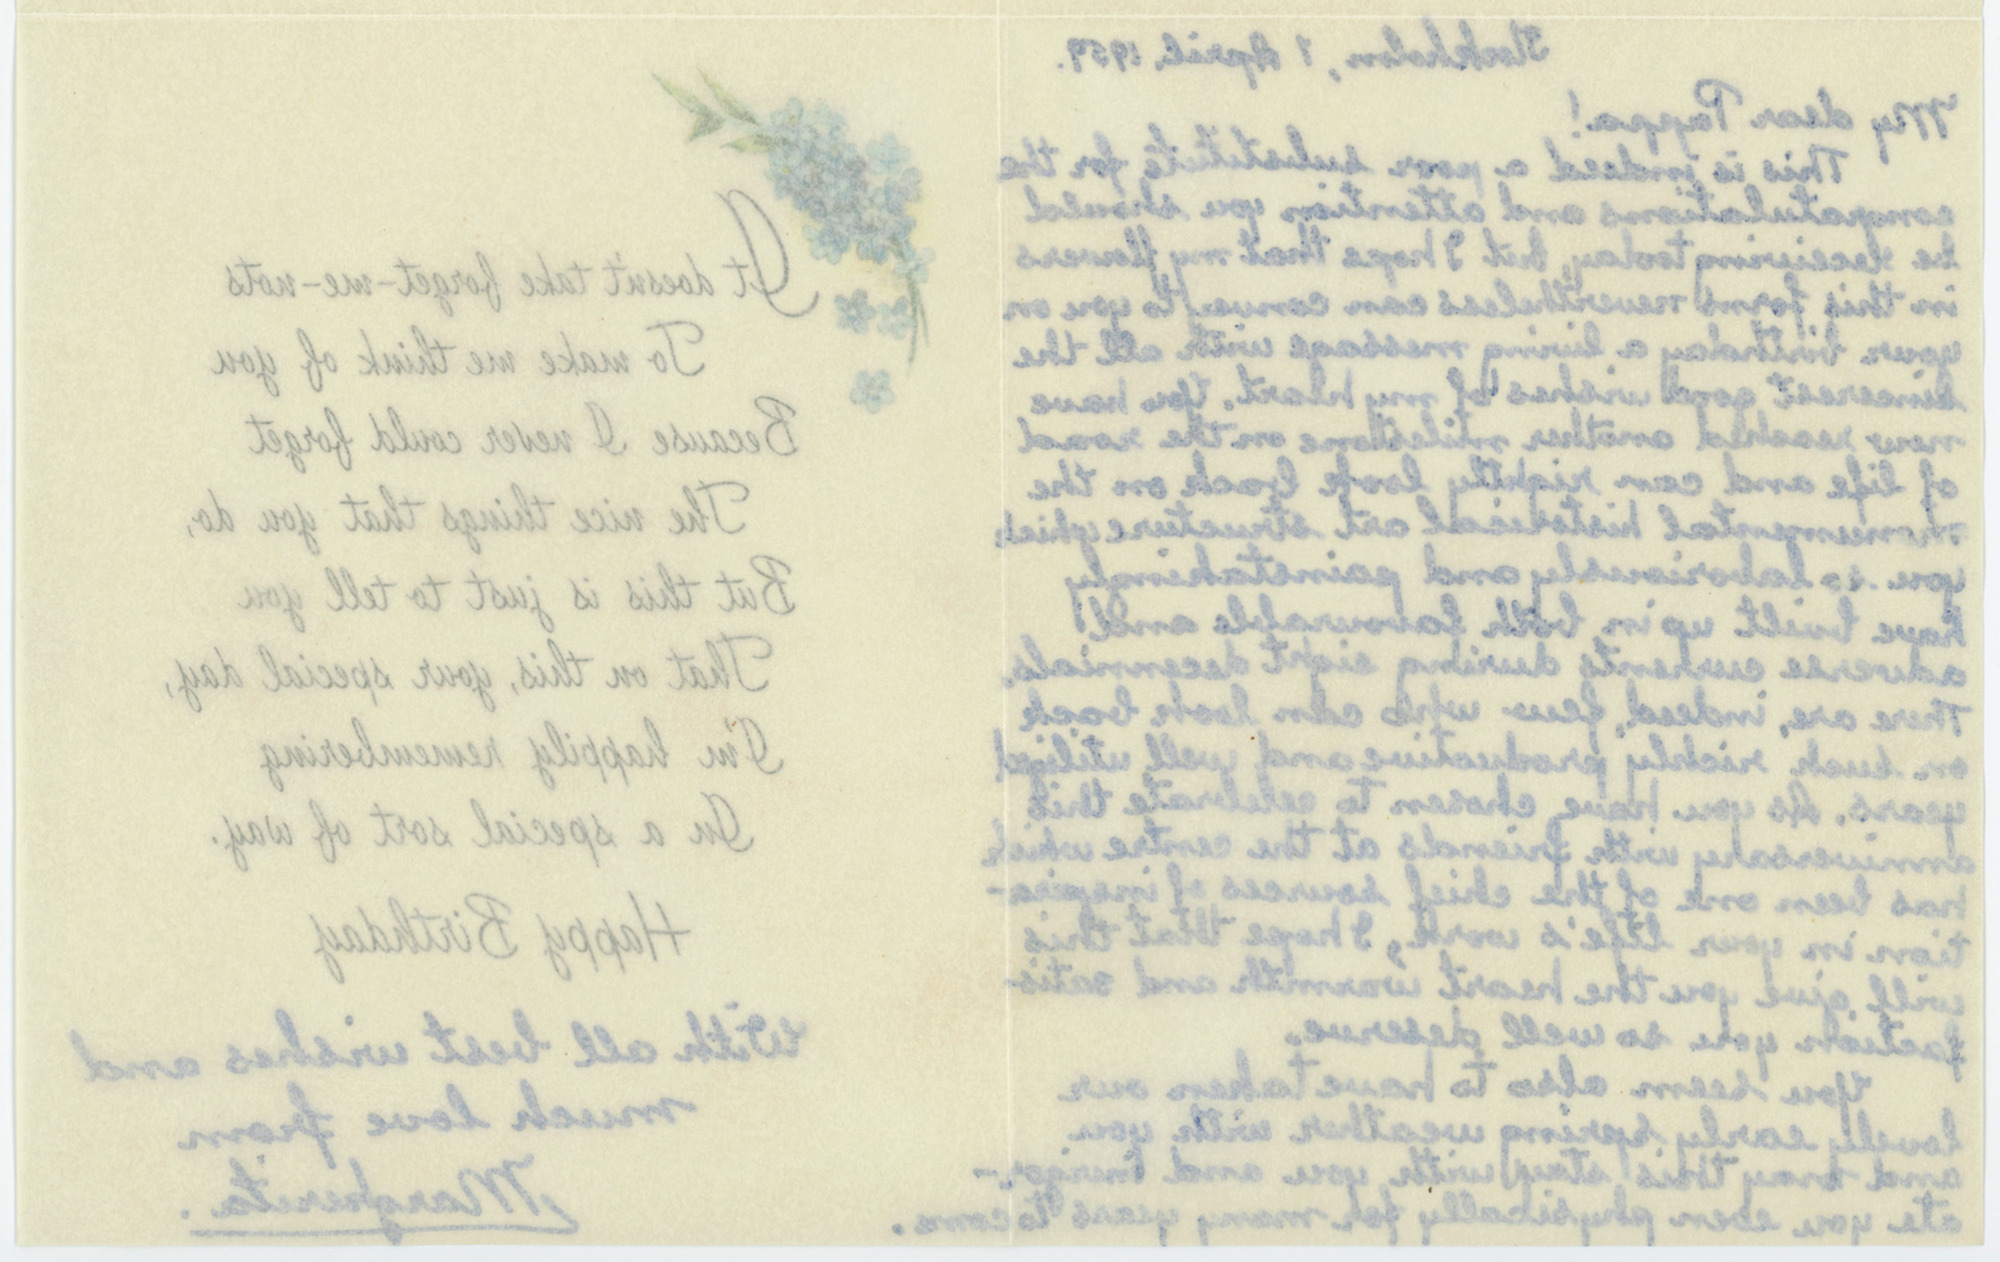 Stockholm, 1 April, 1959.
My dear Pappa!
This is indeed a poor substitute for the
congratulations and attention you should
be receiving today, but I hope that my flowers
in this form nevertheless can convey to you on
your birthday a living message with all the
sincerest good wishes of my heart. You have
now reached another milestone on the road
of life and can rightly look back on the
monumental historical art structure which
you so laboriously and painstakingly
have built up in both favourable and
adverse currents during eight decennials.
There are, indeed, few who can look back
on such richly productive and well utilized
years. As you have chosen to celebrate this
anniversary with friends at the centre which
has been one of the chief sources of inspira-
tion in your life's work, I hope that this
will give you the heart warmth and satis-
faction you so well deserve.
You seem also to have taken our
lovely early spring weather with you
and may this stay with you and invigor-
ate you even physically for many years to come.
It doesn't take forget-me-nots
To make me think of you
Because I never could forget
The nice things that you do,
But this is just to tell you
That on this, your special day,
I'm happily remembering
In a special sort of way.
Happy Birthday
With all best wishes and
much love from
Margherita.